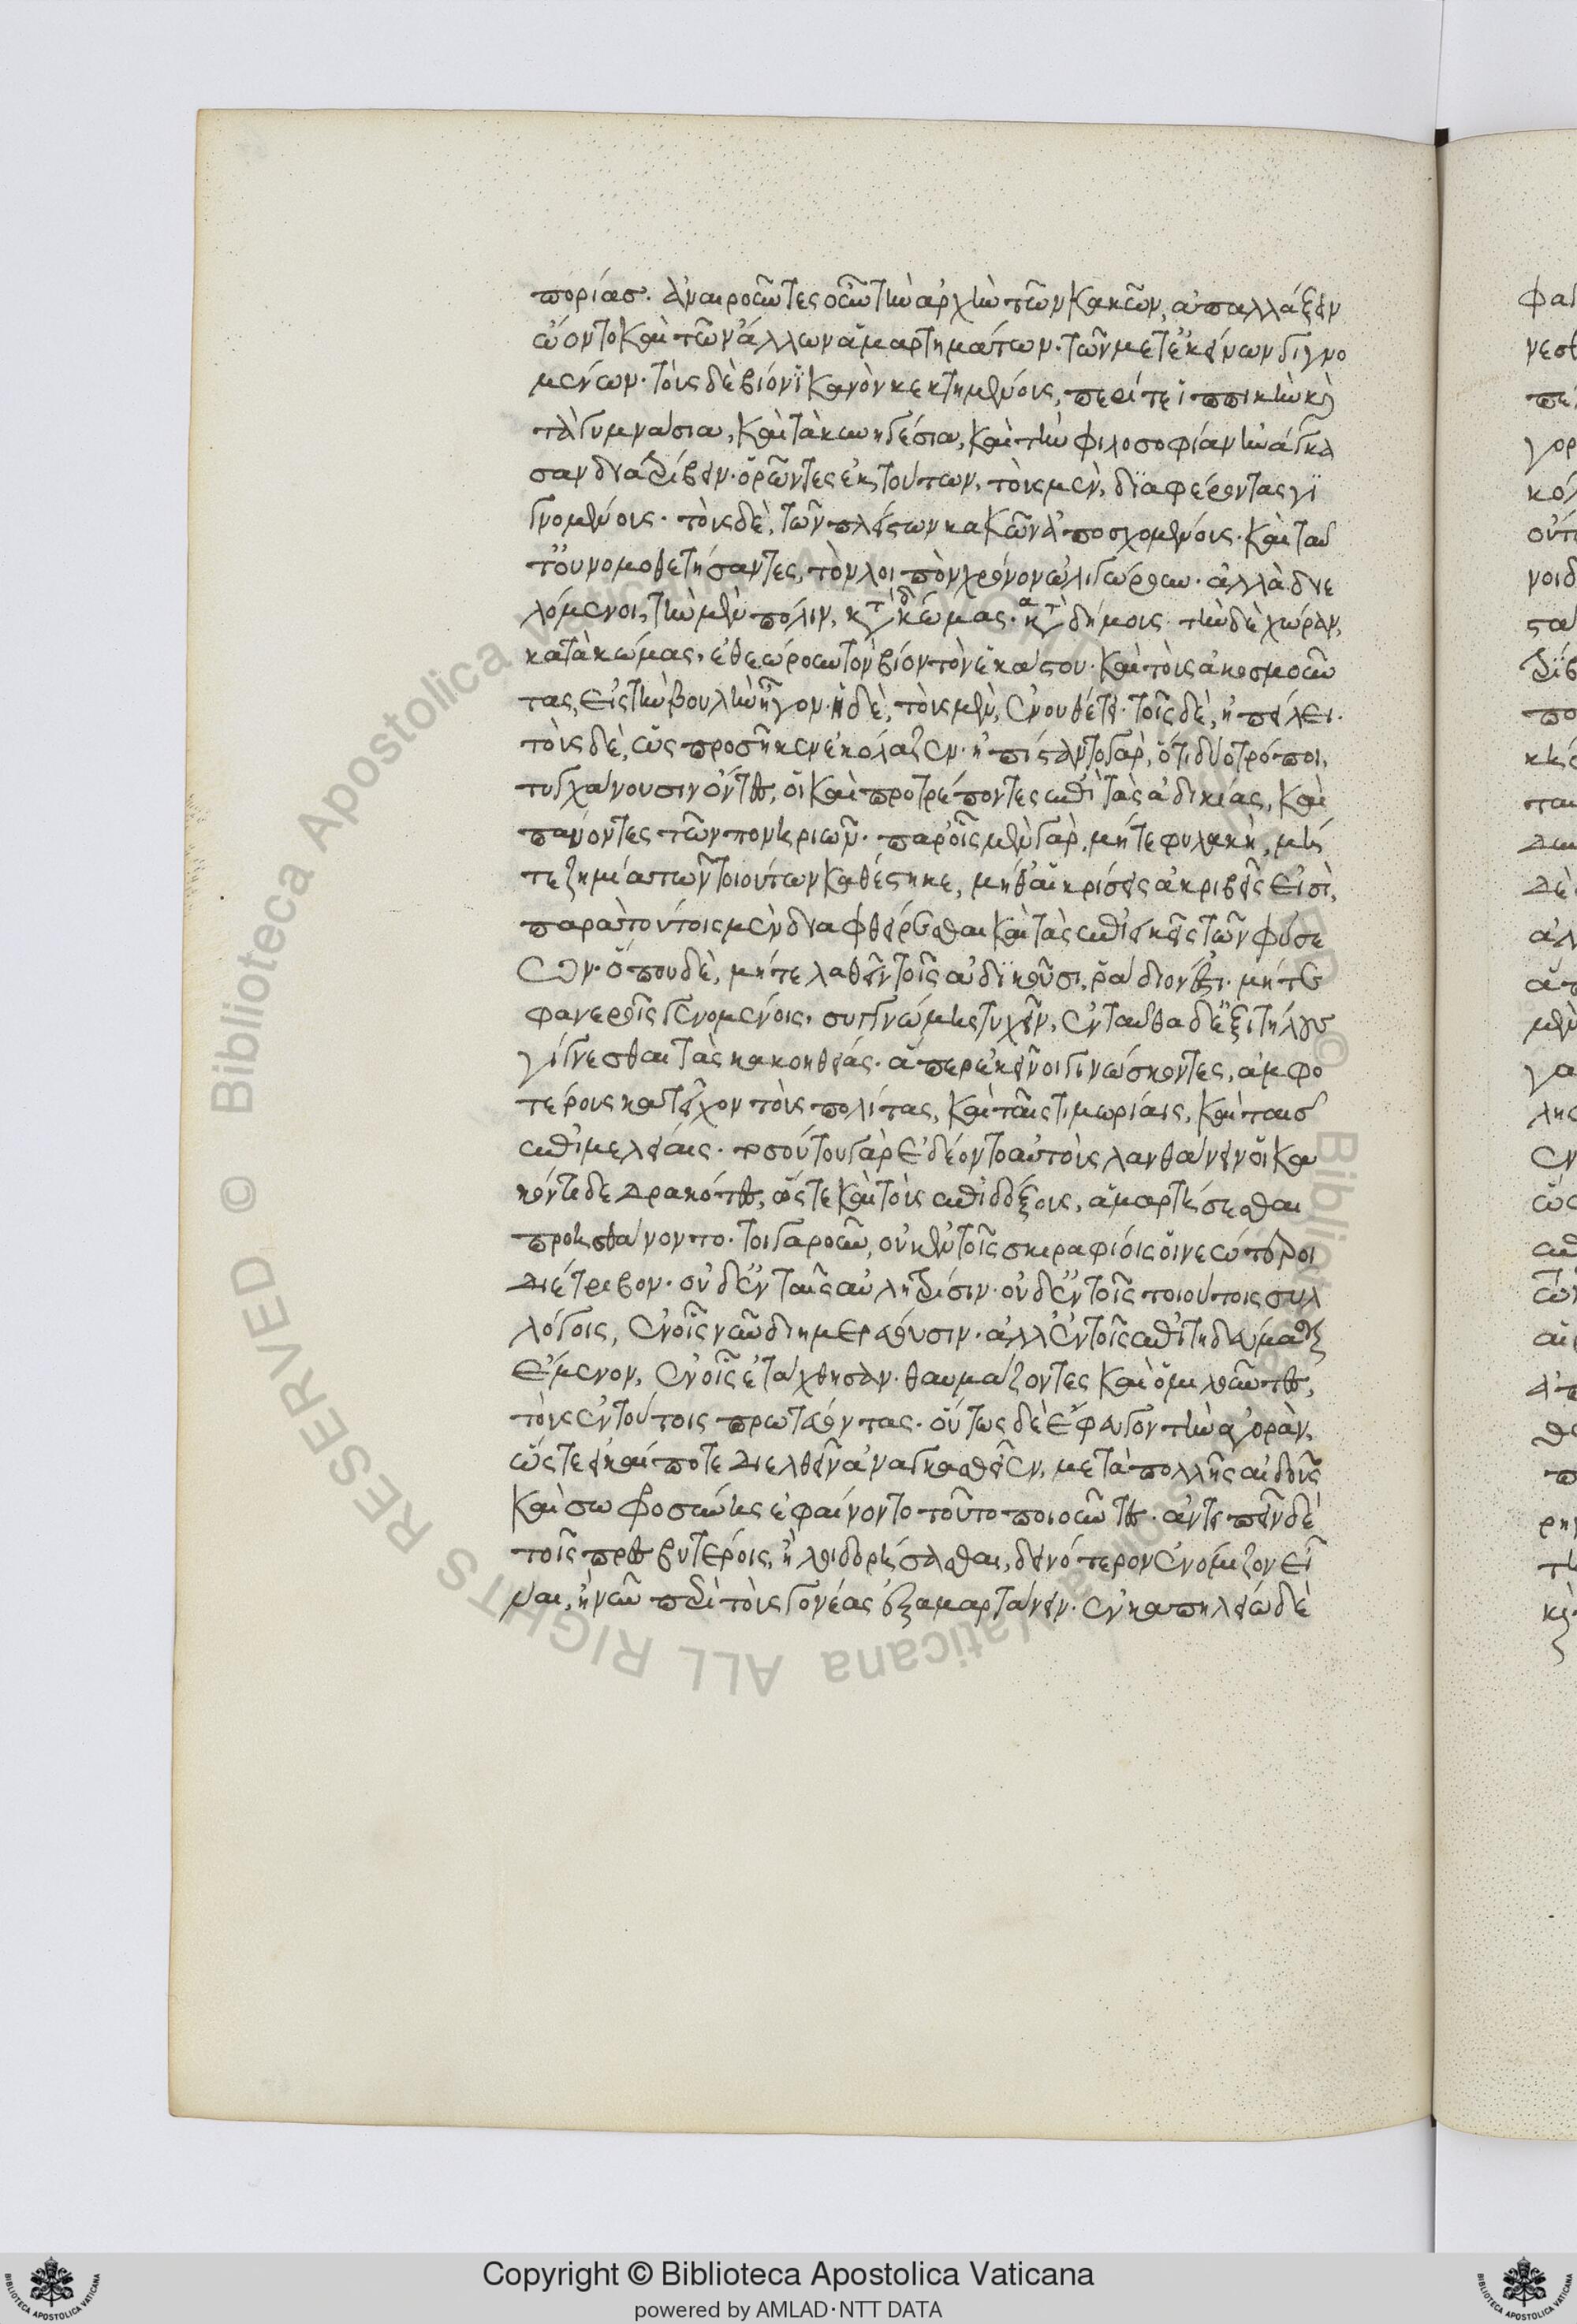 πορίασ. ἀναιροῦντες οὖν τὴν ἀρχὴν τῶν κακῶν, ἀπαλλάξειν
ᾤοντο καὶ τῶν ἄλλων ἁμαρτημάτων. τῶν μετ' ἐκείνων γιγνο
μένων. τοὺς δὲ βίον ἱκανὸν κεκτημένους, περί τε ἱππικὴν κὶ
τὰ γυμνάσια, καὶ τὰ κυνηγέσια, καὶ τὴν φιλοσοφίαν ἠνάγκα
σαν διατρίβειν. ὁρῶντες ἐκ τούτων, τοὺς μὲν, διαφέροντας γι
γνομένους. τοὺς δὲ, τῶν πλείστων κακῶν ἀποσχομένους. καὶ ταῦ
τα νομοθετήσαντες, τὸν λοιπὸν χρόνον ὠλιγώρουν. ἀλλὰ διε
λόμενοι, τὴν μὲν πόλιν, κτ κώμας. κτ δήμους. τὴν δὲ χώραν,
κατὰ κώμας, ἐθεώρουν τὸν βίον τὸν ἑκάστου. καὶ τοὺς ἀκοσμοῦν
τας, εἰς τὴν βουλὴν ἦγον. ἡ δὲ, τοὺς μὲν, ἐνουθέτει. τοῖς δὲ, ἠπείλει.
τοὺς δὲ, ὡς προσῆκεν ἐκόλαζεν. ἠπίσταντο γὰρ, ὅτι δύο τρόποι,
τυγχάνουσιν ὄντες, οἱ καὶ προτρέποντες ἐπὶ τὰς ἀδικίας, καὶ
παύοντες τῶν πονηριῶν. παρ' οἷς μὲν γὰρ, μήτε φυλακὴ, μή
τε ζημία τῶν τοιούτων καθέστηκε, μήθ' αἱ κρίσεις ἀκριβεῖς εἰσὶ,
παρὰ τούτοις μὲν διαφθείρεσθαι καὶ τὰς ἐπιεικεῖς τῶν φύσε
ων. ὅπου δὲ, μήτε λαθεῖν τοῖς ἀδικοῦσι, ῥάδιόν ἐστι. μήτε
φανεροῖς γενομένοις, συγγνώμης τυχεῖν, ἐνταῦθα δ' ἐξιτήλους
γίγνεσθαι τὰς κακοηθείας. ἅπερ ἐκεῖνοι γιγνώσκοντες, ἀμφο
τέροις κατεῖχον τοὺς πολίτας, καὶ ταῖς τιμωρίαις, καὶ ταῖσ
ἐπιμελείαις. τοσούτου γὰρ ἐδέοντο αὐτοὺς λανθάνειν οἱ κα
κόν τι δεδρακότες, ὥστε καὶ τοὺς ἐπιδόξους, ἁμαρτήσεσθαι
προῃσθάνοντο. τοιγαροῦν, οὐκ ἐν τοῖς σκιραφίοις οἱ νεώτεροι
διέτριβον. οὐδ' ἐν ταῖς αὐλητρίσιν. οὐδ' ἐν τοῖς τοιούτοις συλ
λόγοις, ἐν οἷς νῦν διημερεύουσιν. ἀλλ' ἐν τοῖς ἐπιτηδεύμασιν
ἔμενον, ἐν οἷς ἐτάχθησαν. θαυμάζοντες καὶ ζηλοῦντες,
τοὺς ἐν τούτοις πρωτεύοντας. οὕτως δὲ ἔφευγον τὴν ἀγορὰν,
ὥστε εἰ καί ποτε διελθεῖν ἀναγκασθεῖεν, μετὰ πολλῆς αἰδοῦς
καὶ σωφροσύνης ἐφαίνοντο τοῦτο ποιοῦντες. ἀντειπεῖν δὲ
τοῖς πρεσβυτέροις, ἢ λοιδορήσασθαι, δεινότερον ἐνόμιζον εἶ
ναι, ἢ νῦν περὶ τοὺς γονέας ἐξαμαρτάνειν. ἐν καπηλείῳ δὲ
Copyright © Biblioteca Apostolica Vaticana
powered by AMLAD·NTT DATA
© Biblioteca Apostolica Vaticana ALL RIGHTS RESERVED